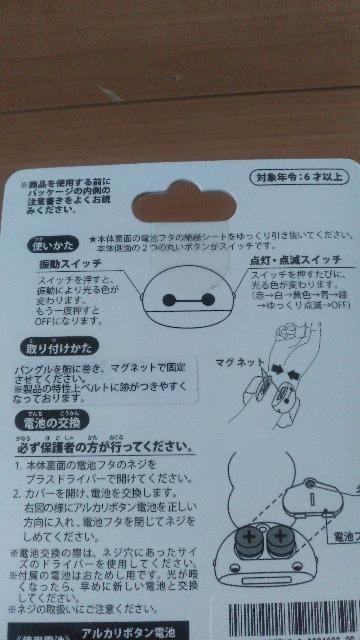 ※商品を使用する前に
パッケージの内側の
注意書きをよくお読
みください。
対象年令:6才以上
使いかた
★本体裏面の電池フタの絶縁シートをゆっくり引き抜いてください。
本体側面の2つの丸いボタンがスイッチです。
振動スイッチ
スイッチを押すと、
振動により光る色が
変わります。
もう一度押すと
OFFになります。
点灯・点滅スイッチ
スイッチを押すたびに、
光る色が変わります。
(赤→白→黄色→青→緑
→ゆっくり点滅→OFF)
取り付けかた
バングルを腕に巻き、マグネットで固定
させてください。
※製品の特性上ベルトに跡がつきやすく
なっております。
マグネット
でんち こうかん
電池の交換
かなら ほごしゃ かた おこな
必ず保護者の方が行ってください。
1. 本体裏面の電池フタのネジを
プラスドライバーで開けてください。
2. カバーを開け、電池を交換します。
右図の様にアルカリボタン電池を正しい
方向に入れ、電池フタを閉じてネジを
しめてください。
※電池交換の際は、ネジ穴にあったサイ
ズのドライバーを使用してください。
※付属の電池はおためし用です。光が暗
くなったら、早めに新しい電池と交換
してください。
※ネジの取扱いにご注意ください。
電池フ
アルカリボタン電池